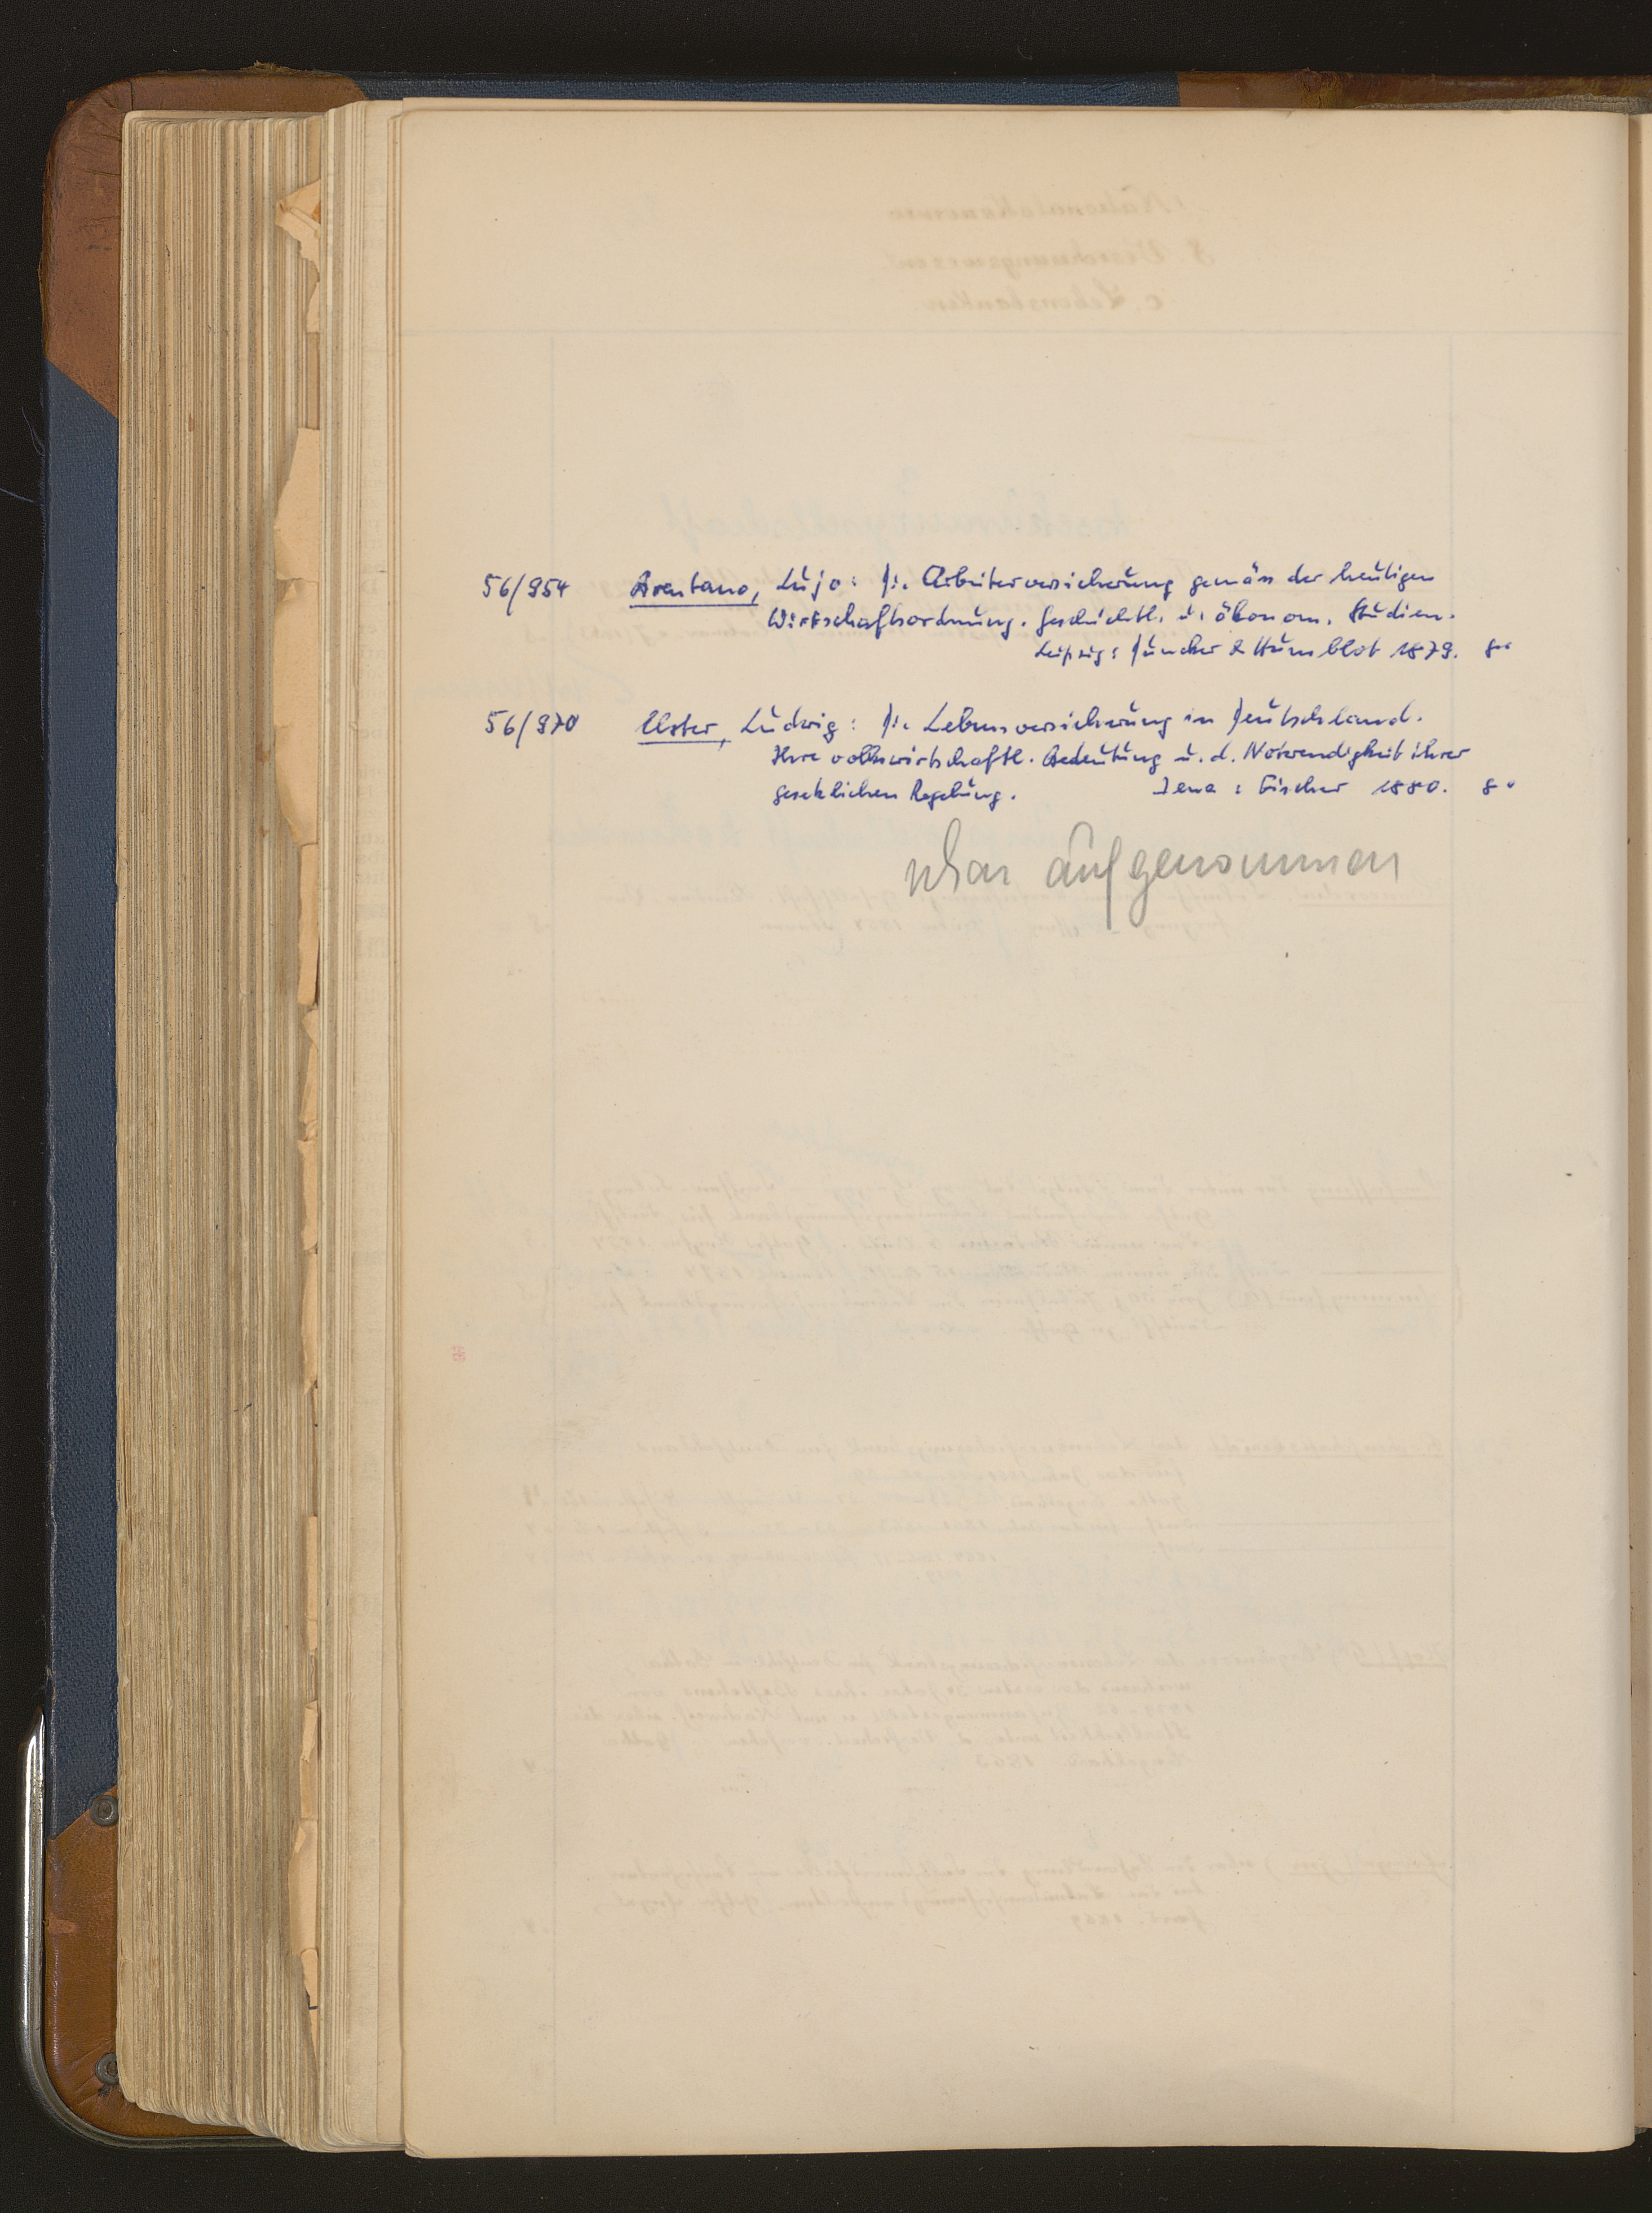 56/954 Brentano, Lujo: Die Arbeiterversicherung gemäss der heutigen
Wirtschaftsordnung. Geschichtl. u. ökonom. Studien.
Leipzig: Duncker & Humblot 1879. 8°
56/970 Elster, Ludwig: Die Lebensversicherung in Deutschland.
Ihre volkswirtschaftl. Bedeutung u. d. Notwendigkeit ihrer
gesetzlichen Regelung. Jena: Fischer 1880. 8°
aufgenommen